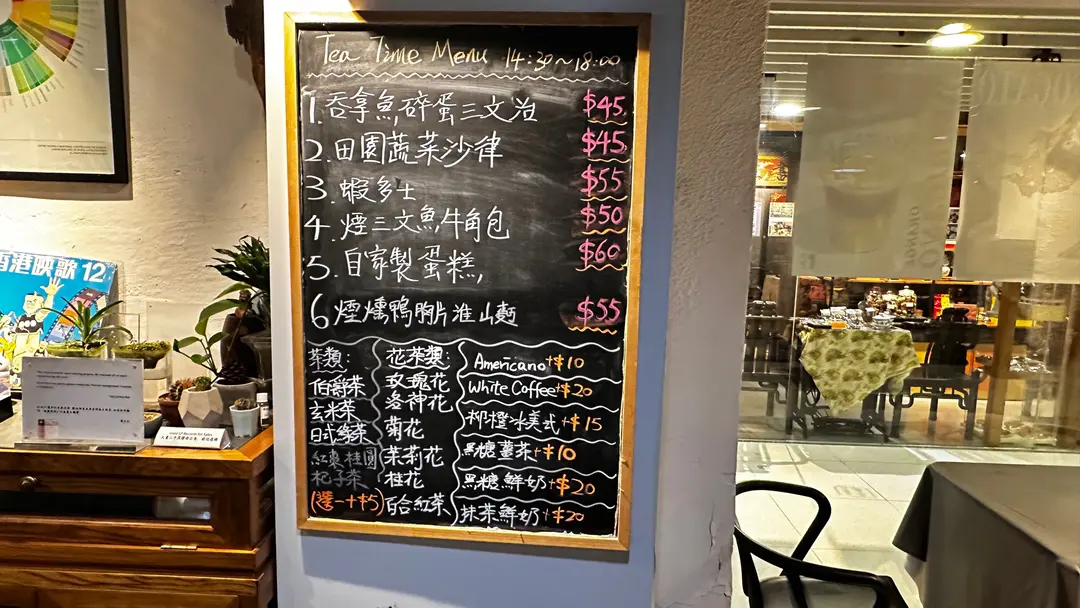 Tea Time Menu 14:30~18:00
1. 吞拿魚,碎蛋三文治 $45
2. 田園蔬菜沙律 $45
3. 蝦多士 $55
4. 煙三文魚,牛角包 $50
5. 自家製蛋糕, $60
6 煙燻鴨胸片淮山麵 $55
茶類:
伯爵茶
玄米茶
日式綠茶
紅棗桂圓
杞子茶
(選一+$5)
花茶類:
玫瑰花
洛神花
菊花
茉莉花
桂花
百合紅茶
Americano+$10
White Coffee+$20
柳橙冰美式+$15
黑糖薑茶+$10
黑糖鮮奶+$20
抹茶鮮奶+$20
香港映歌 12